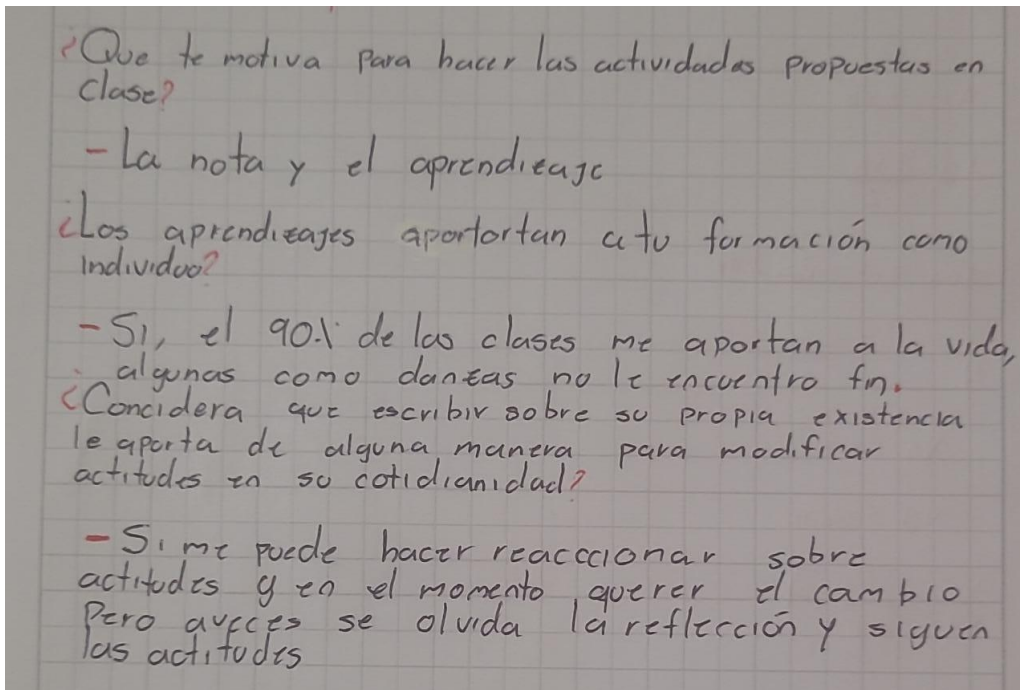 ¿Que te motiva para hacer las actividades propuestas en
Clase?
- La nota y el aprendizaje
¿Los aprendizajes aportortan a tu formación como
individuo?
- Si, el 90% de las clases me aportan a la vida,
algunas como danzas no le encuentro fin.
¿Concidera que escribir sobre su propia existencia
le aporta de alguna manera para modificar
actitudes en su cotidianidad?
- Si me puede hacer reacccionar sobre
actitudes y en el momento querer el cambio
Pero aveces se olvida la reflección y siguen
las actitudes